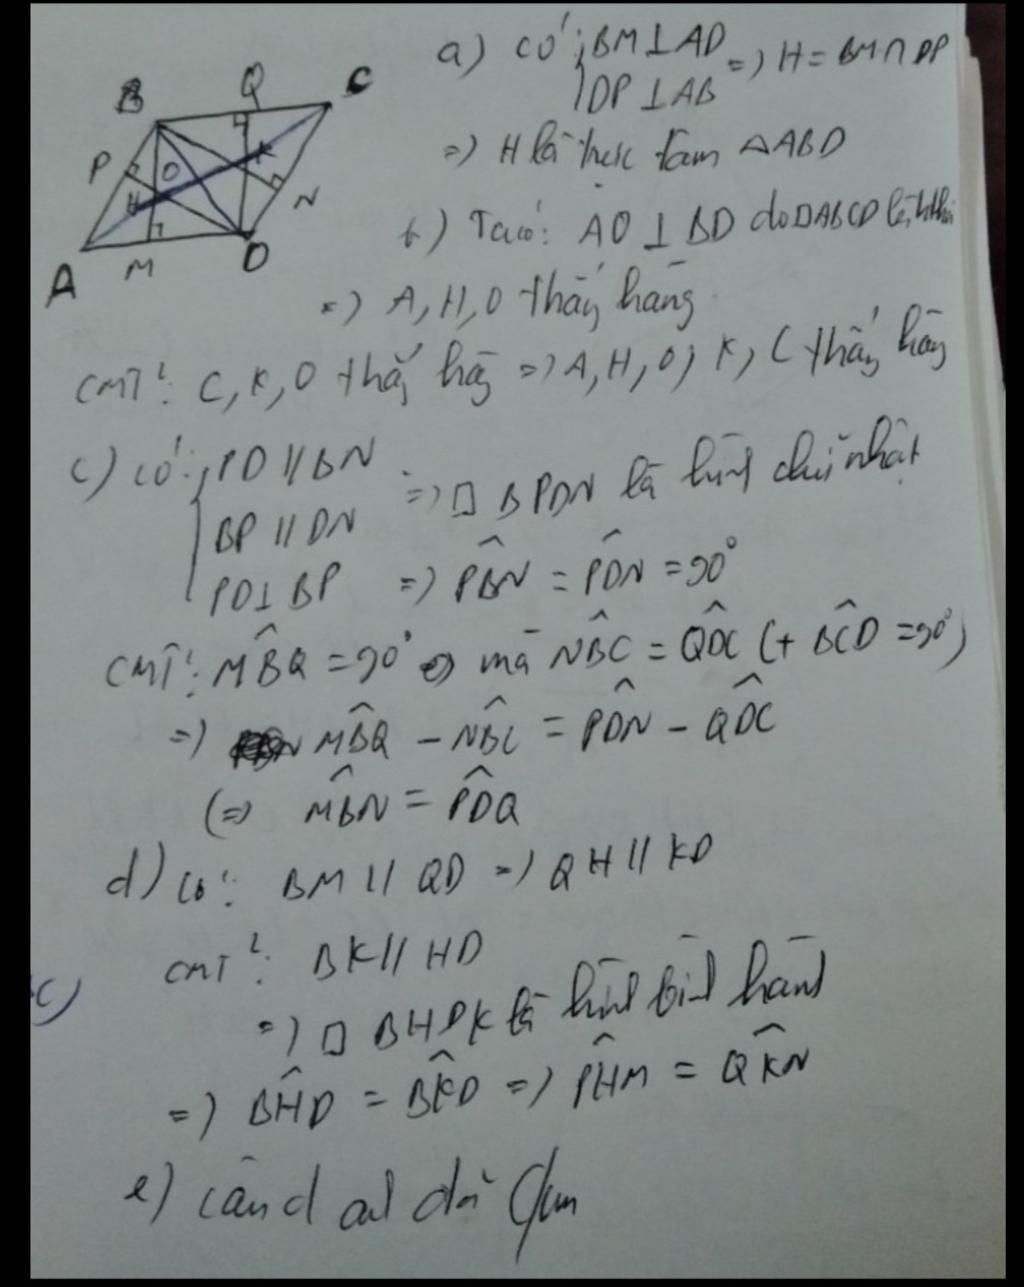 B Q C
P O K
H N
A M D
a) có: { BM ⊥ AD
DP ⊥ AB => H = BM ∩ DP
=> H là trực tâm △ABD
b) Ta có: AO ⊥ BD do □ABCD là hthoi
=> A, H, O thẳng hàng.
CMT²: C, K, O thẳng hàng => A, H, O, K, C thẳng hàng
c) Có: { PD // BN
BP // DN => □ BPDN là hình chữ nhật
PD ⊥ BP => P̂BN = P̂DN = 90°
CMT²: M̂BQ = 90° mà N̂BC = Q̂DC (+ B̂CD = 90°)
=> M̂BQ - N̂BC = P̂DN - Q̂DC
(=> M̂BN = P̂DQ
d) Có: BM // QD => QH // KD
CMT²: BK // HD
c)
=> □ BHDK là hình bình hành
=> B̂HD = B̂KD => P̂HM = Q̂KN
e) câu d